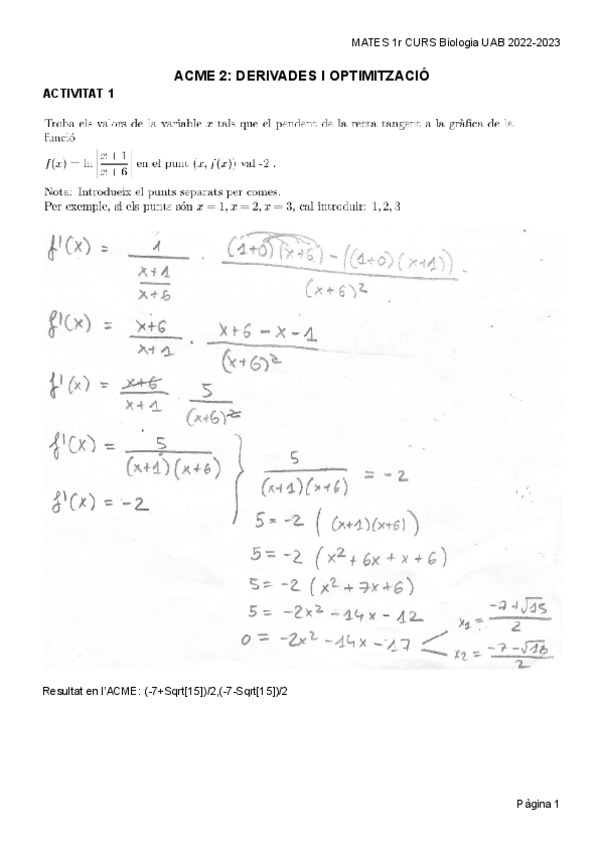 MATES 1r CURS Biologia UAB 2022-2023
ACME 2: DERIVADES I OPTIMITZACIÓ
ACTIVITAT 1
Troba els valors de la variable x tals que el pendent de la recta tangent a la gràfica de la
funció
f(x) = ln |x + 1 / x + 6| en el punt (x, f(x)) val -2 .
Nota: Introdueix el punts separats per comes.
Per exemple, si els punts són x = 1, x = 2, x = 3, cal introduir: 1, 2, 3
f'(x) = 1 / (x+1 / x+6) · (1+0)(x+6) - ((1+0)(x+1)) / (x+6)²
f'(x) = x+6 / x+1 · x+6-x-1 / (x+6)²
f'(x) = x+6 / x+1 · 5 / (x+6)²
f'(x) = 5 / (x+1)(x+6)
f'(x) = -2
5 / (x+1)(x+6) = -2
5 = -2 ((x+1)(x+6))
5 = -2 (x² + 6x + x + 6)
5 = -2 (x² + 7x + 6)
5 = -2x² - 14x - 12
0 = -2x² - 14x - 17
x₁ = -7+√15 / 2
x₂ = -7-√15 / 2
Resultat en l'ACME: (-7+Sqrt[15])/2,(-7-Sqrt[15])/2
Pàgina 1